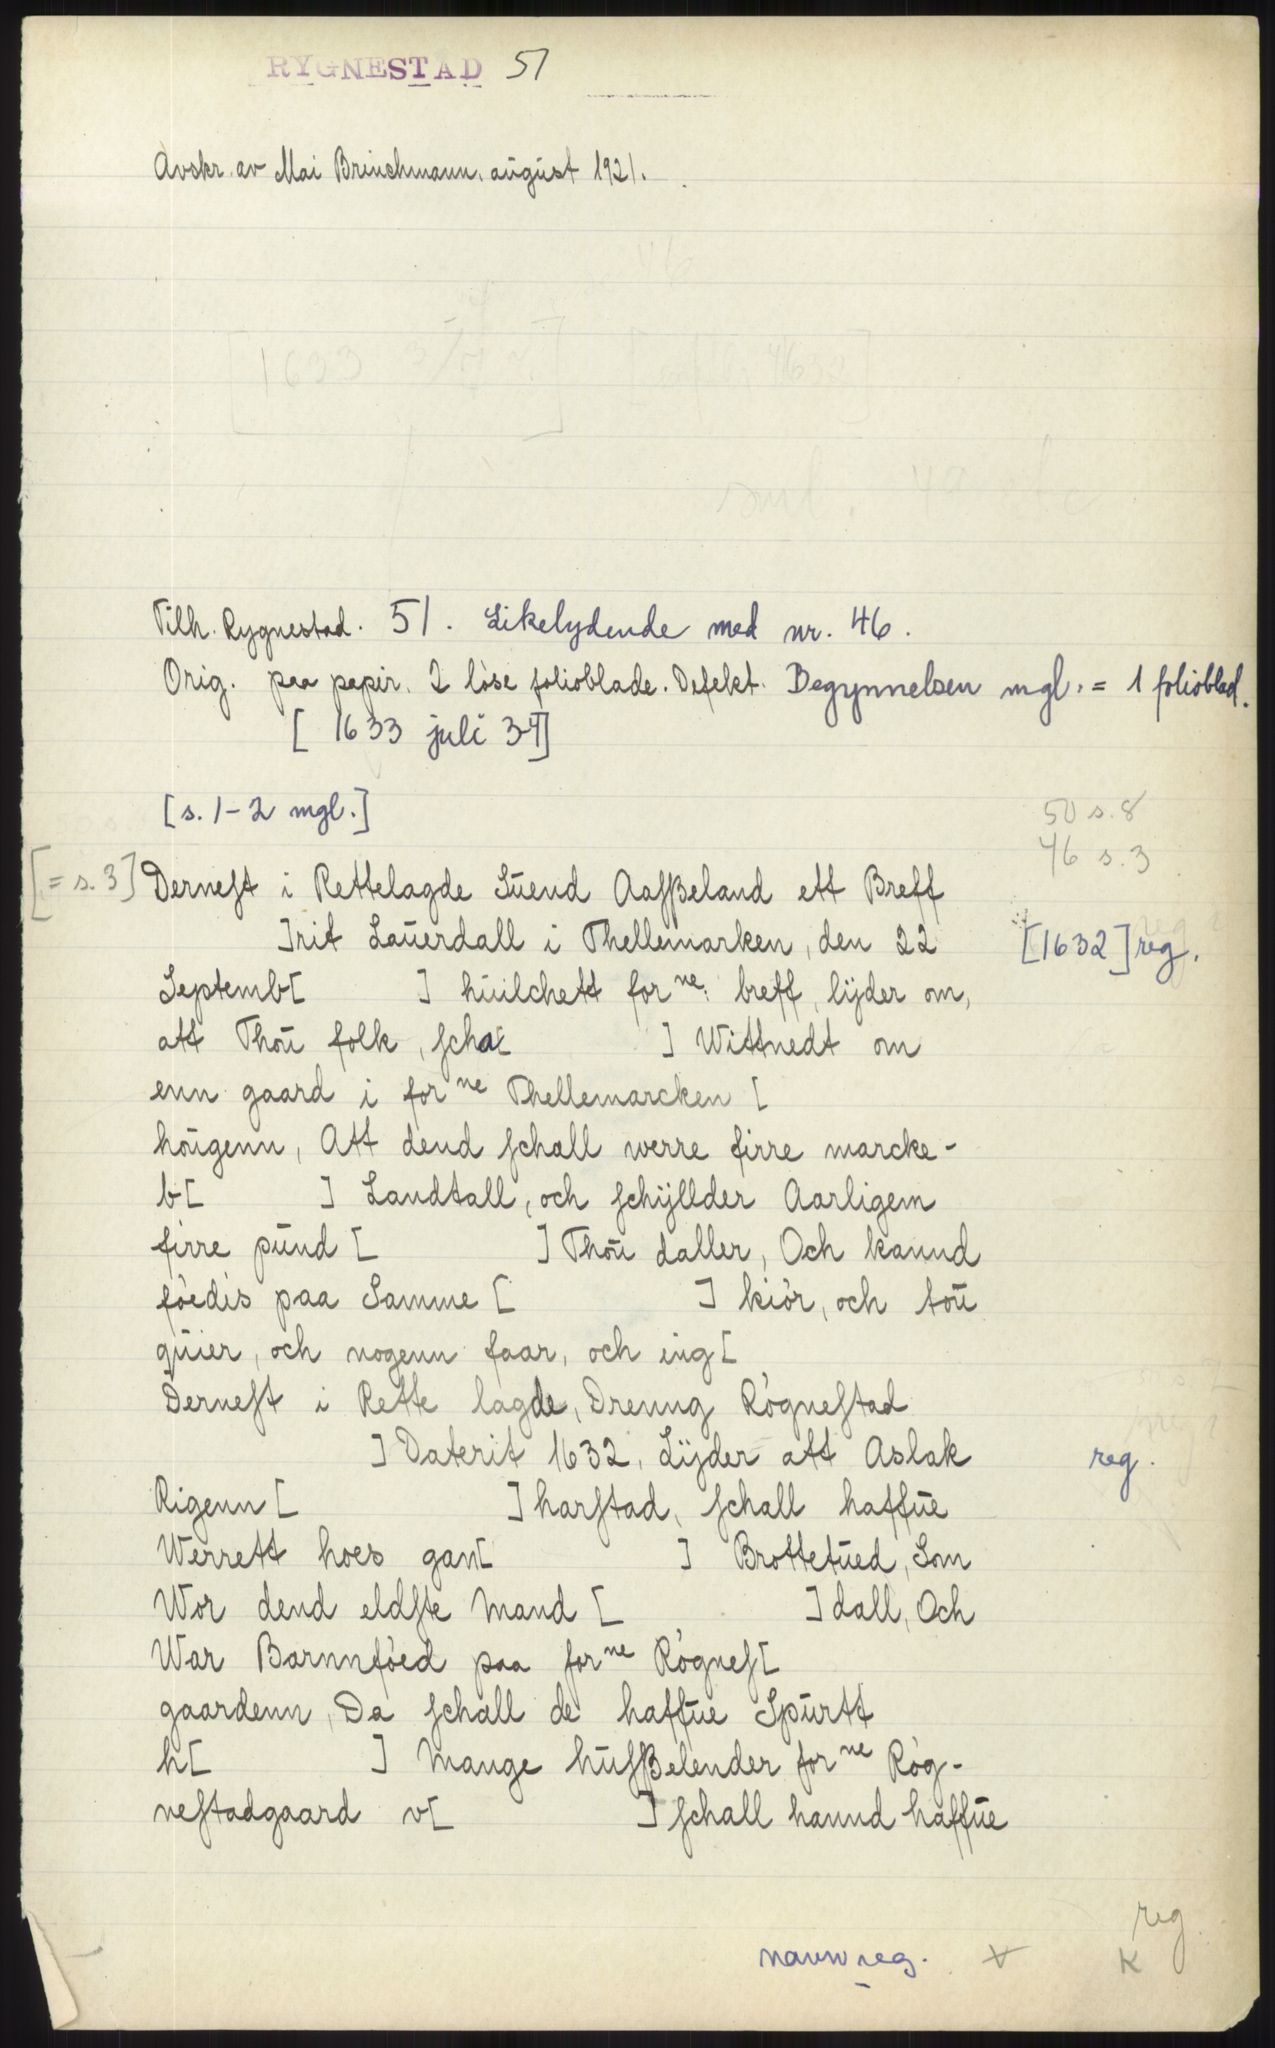 RYGNESTAD 51
Avskr. av Mai Brinchmann, august 1921.
Tilh. Rygnestad. 51. Likelydende med nr. 46.
Orig. paa papir. 2 løse folioblade. Defekt. Begynnelsen mgl. = 1 folioblad.
[ 1633 juli 3-4]
[s. 1-2 mgl.]
50 s. 8
46 s. 3
[= s. 3] Derneſt i Rettelagde Sūend Aaſßeland ett Breff
]rit Laūerdall i Thellemarken, den 22 [1632] reg.
Septemb[ ] hūilchett for ne: breff, lÿder om,
att Thoū folk, ſcha[ ] Wittnedt om
enn gaard i for ne Thellemarcken [
hoūgenn, Att dend ſchall werre firre marcke-
b[ ] Landtall, och ſchÿllder Aarligem
firre pūnd [ ] Thoū daller, Och kannd
føedis paa Samme [ ] kiør, och toū
qūier, och nogenn faar, och ing[
Derneſt i Rette lagde, Dreung Røgneſtad
] Daterit 1632, Lÿder att Aslak reg.
Rigenn [ ] harſtad, ſchall haffūe
Werrett hoes gam[ ] Brottetūed, Som
Wor dend eldſte Mand [ ] dall, Och
War Barnnføed paa for ne Røgneſ[
gaardenn, Da ſchall de haffūe Spūrtt
h[ ] Mange hūſßelender for ne Røg-
neſtadgaard v[ ] ſchall hannd haffūe
reg
navnreg. K